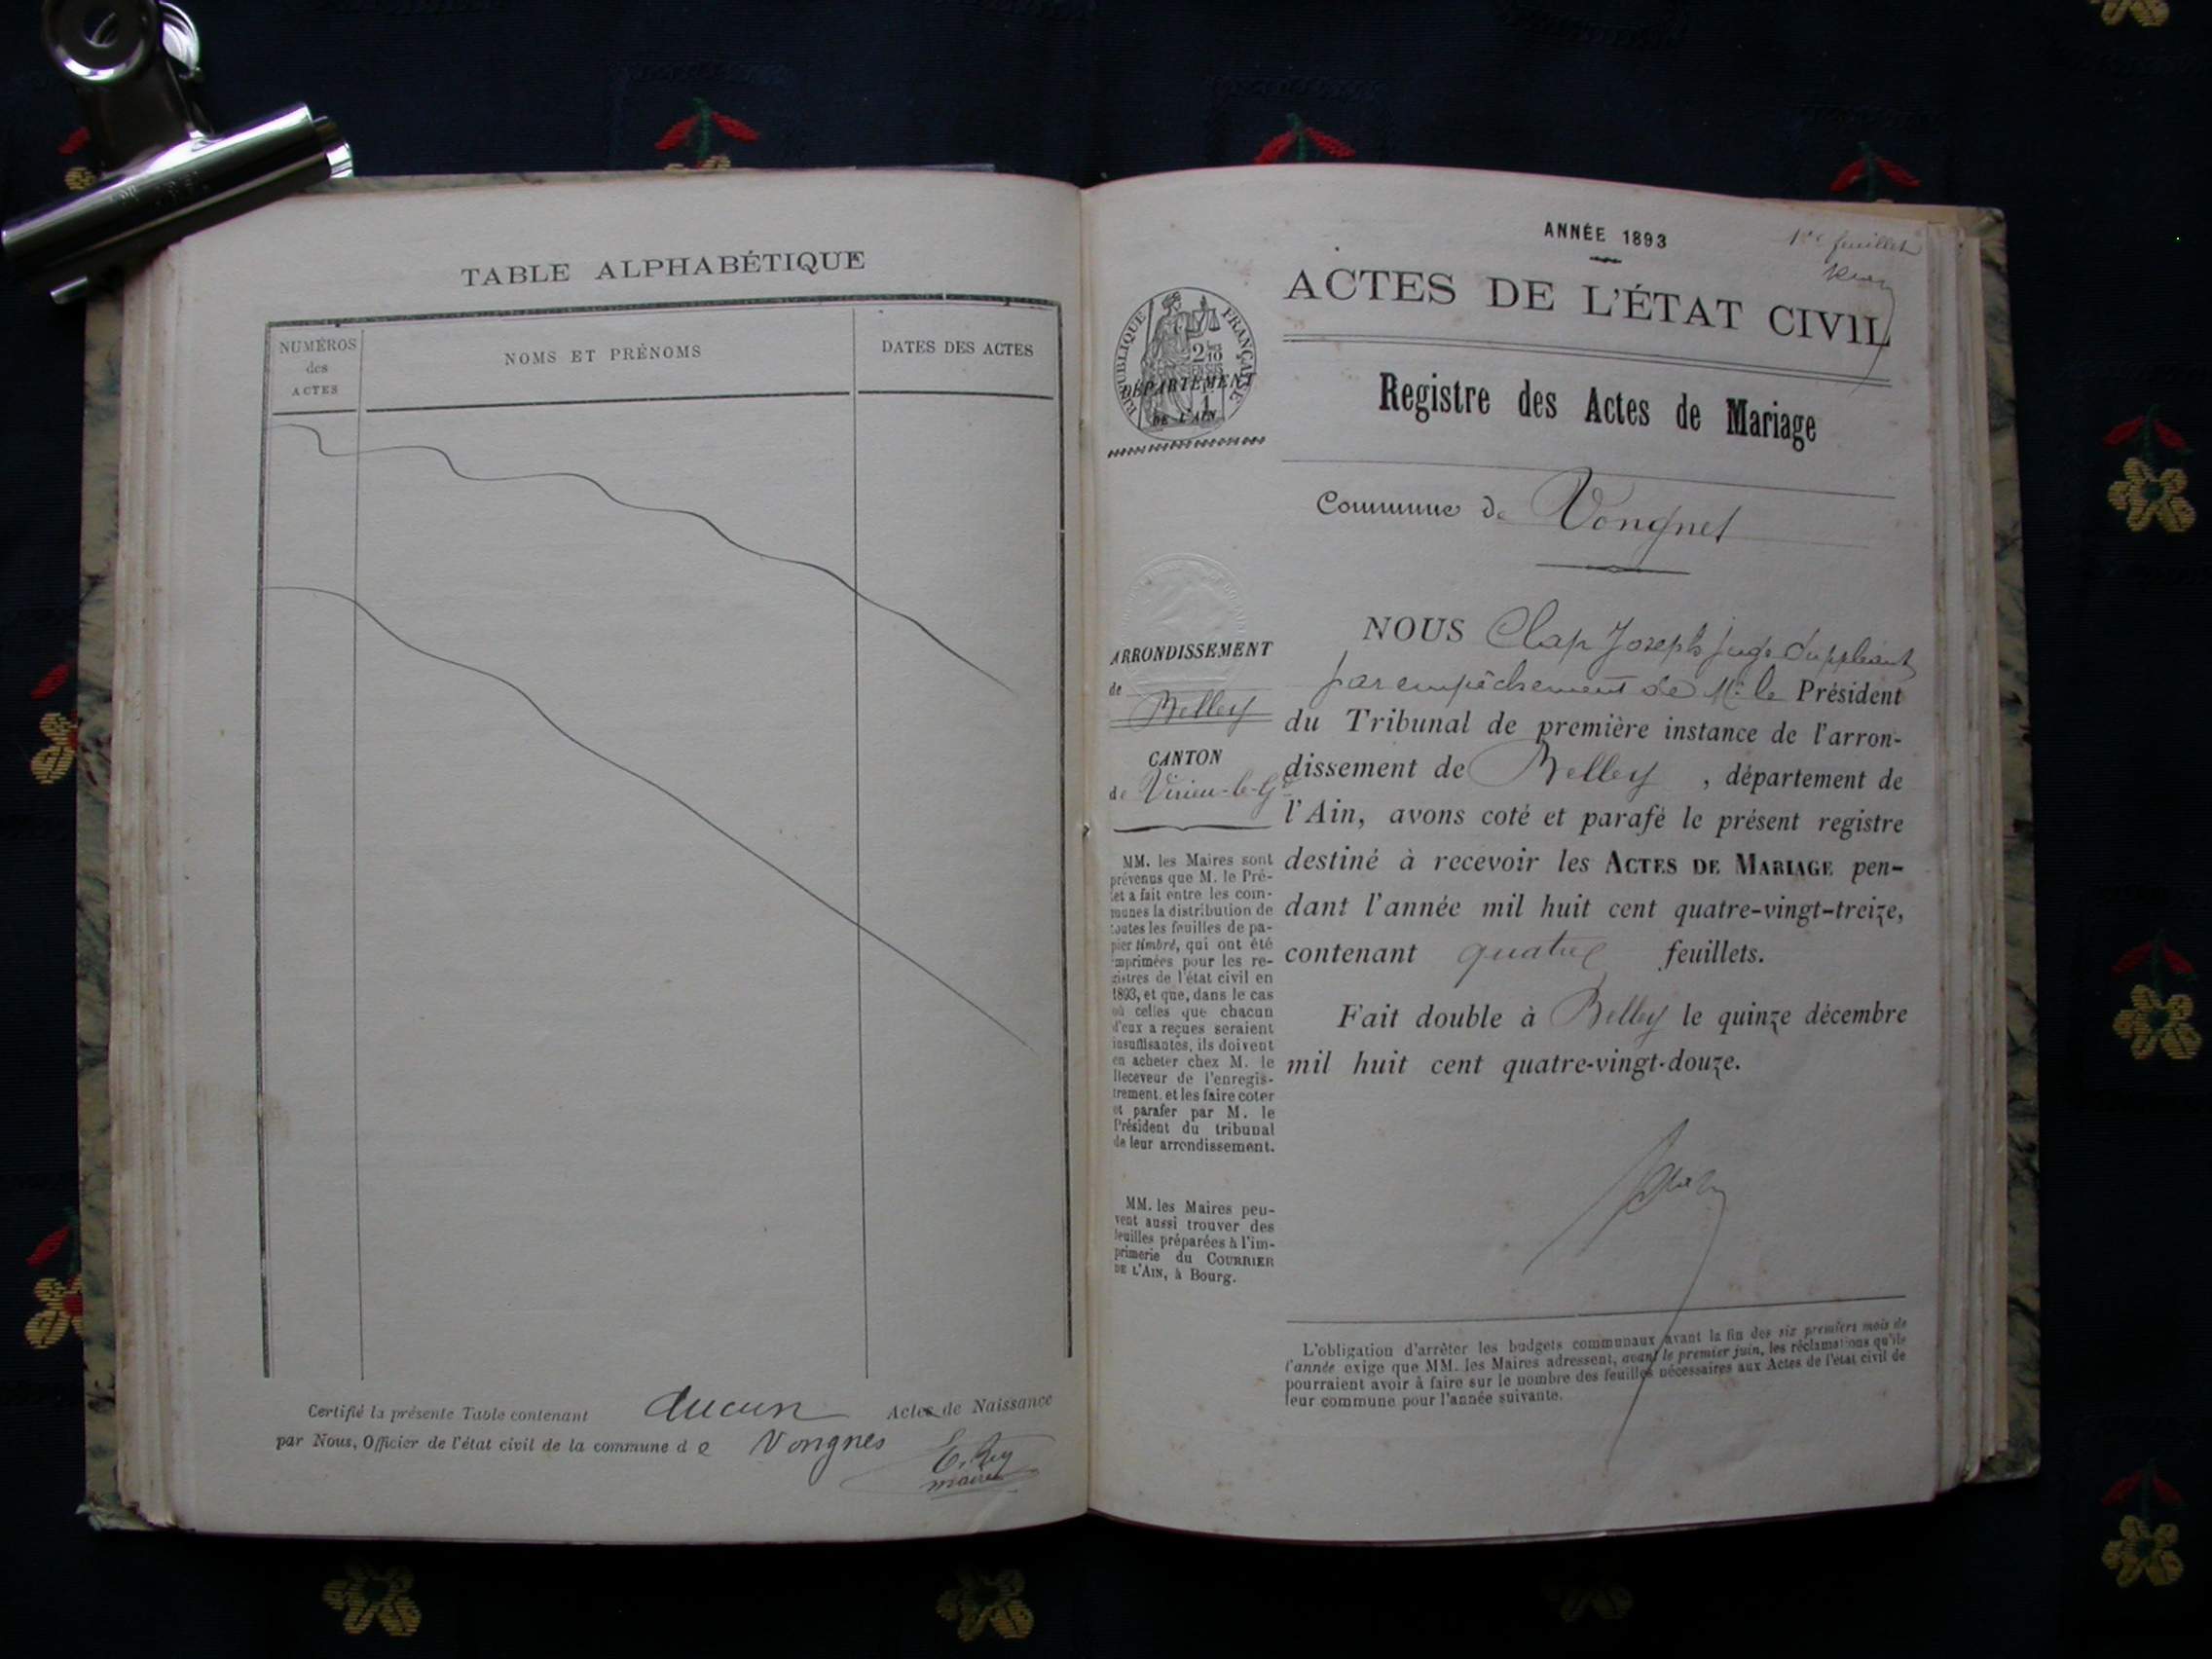 TABLE ALPHABÉTIQUE
NUMÉROS
des
ACTES
NOMS ET PRÉNOMS
DATES DES ACTES
Certifié la présente Table contenant aucun Actes de Naissance
par Nous, Officier de l'état civil de la commune de Vongnes
E. Rey
maire
ANNÉE 1893
1er feuillet
ACTES DE L'ÉTAT CIVIL
RÉPUBLIQUE FRANÇAISE
DÉPARTEMENT
DE L'AIN
Registre des Actes de Mariage
Commune de Vongnes
ARRONDISSEMENT
de
Belley
CANTON
de Virieu-le-Gd
MM. les Maires sont
prévenus que M. le Pré-
fet a fait entre les com-
munes la distribution de
toutes les feuilles de pa-
pier timbré, qui ont été
imprimées pour les re-
gistres de l'état civil en
1893, et que, dans le cas
où celles que chacun
d'eux a reçues seraient
insuffisantes, ils doivent
en acheter chez M. le
Receveur de l'enregis-
trement, et les faire coter
et parafer par M. le
Président du tribunal
de leur arrondissement.
MM. les Maires peu-
vent aussi trouver des
feuilles préparées à l'im-
primerie du COURRIER
DE L'AIN, à Bourg.
NOUS Clap Joseph Juge Suppléant
par empêchement de Mr le Président
du Tribunal de première instance de l'arron-
dissement de Belley, département de
l'Ain, avons coté et parafé le présent registre
destiné à recevoir les ACTES DE MARIAGE pen-
dant l'année mil huit cent quatre-vingt-treize,
contenant quatre feuillets.
Fait double à Belley le quinze décembre
mil huit cent quatre-vingt-douze.
L'obligation d'arrêter les budgets communaux avant la fin des six premiers mois de
l'année exige que MM. les Maires adressent, avant le premier juin, les réclamations qu'ils
pourraient avoir à faire sur le nombre des feuilles nécessaires aux Actes de l'état civil de
leur commune pour l'année suivante.